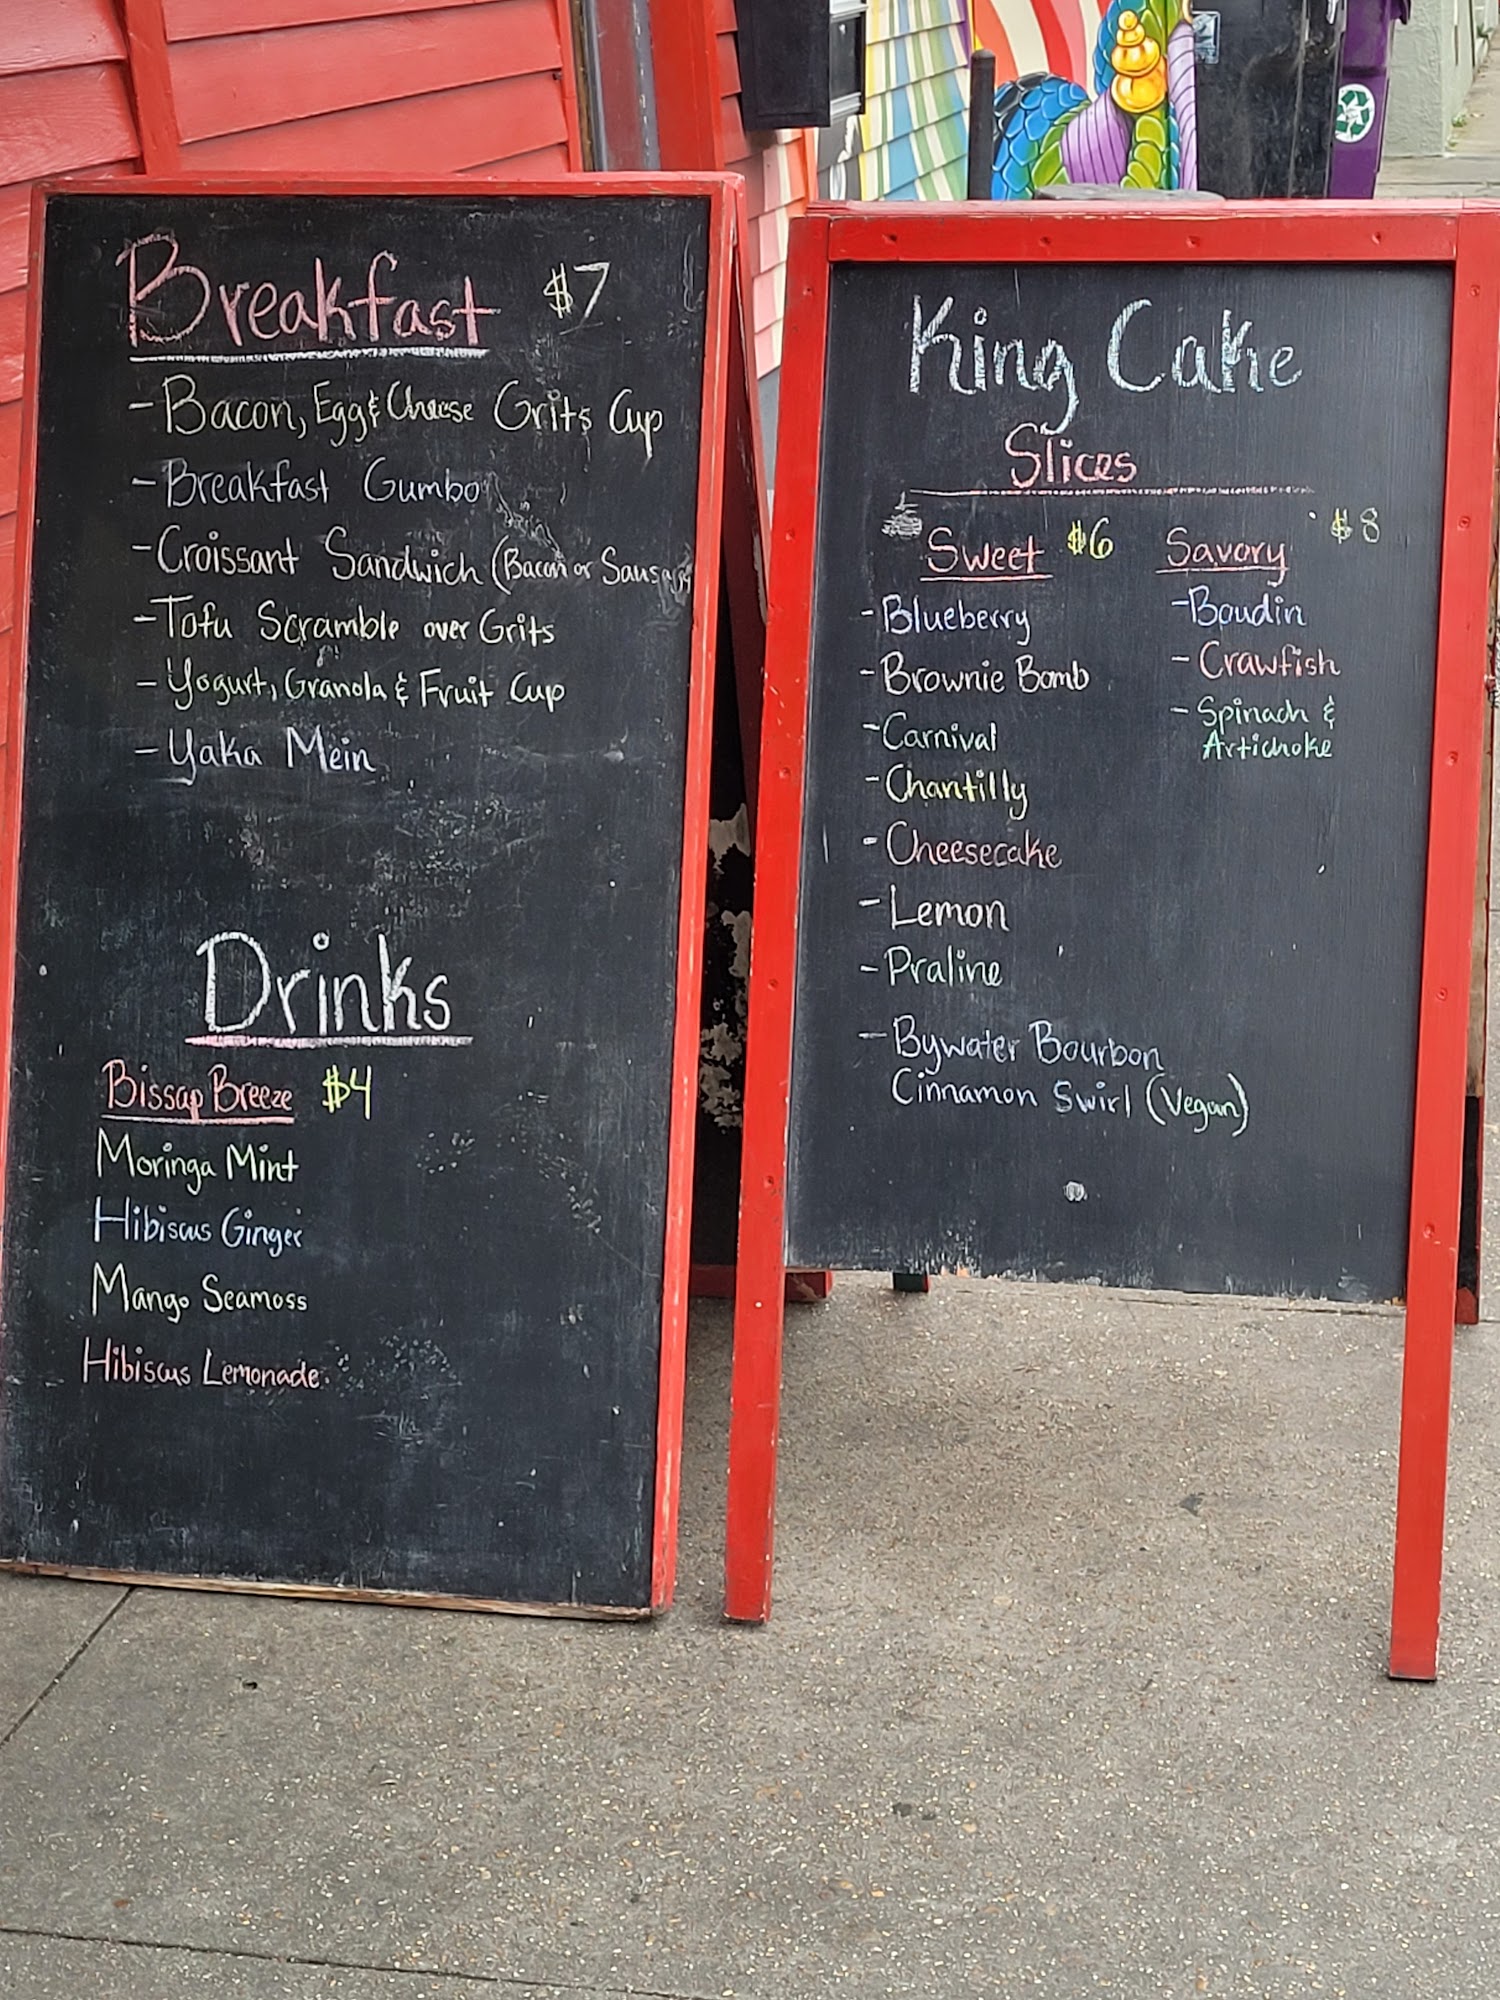 Breakfast $7
- Bacon, Egg & Cheese Grits Cup
- Breakfast Gumbo
- Croissant Sandwich (Bacon or Sausage)
- Tofu Scramble over Grits
- Yogurt, Granola & Fruit Cup
- Yaka Mein
Drinks
Bissap Breeze $4
Moringa Mint
Hibiscus Ginger
Mango Seamoss
Hibiscus Lemonade
King Cake
Slices
Sweet $6
- Blueberry
- Brownie Bomb
- Carnival
- Chantilly
- Cheesecake
- Lemon
- Praline
- Bywater Bourbon
Cinnamon Swirl (Vegan)
Savory $8
- Boudin
- Crawfish
- Spinach &
Artichoke